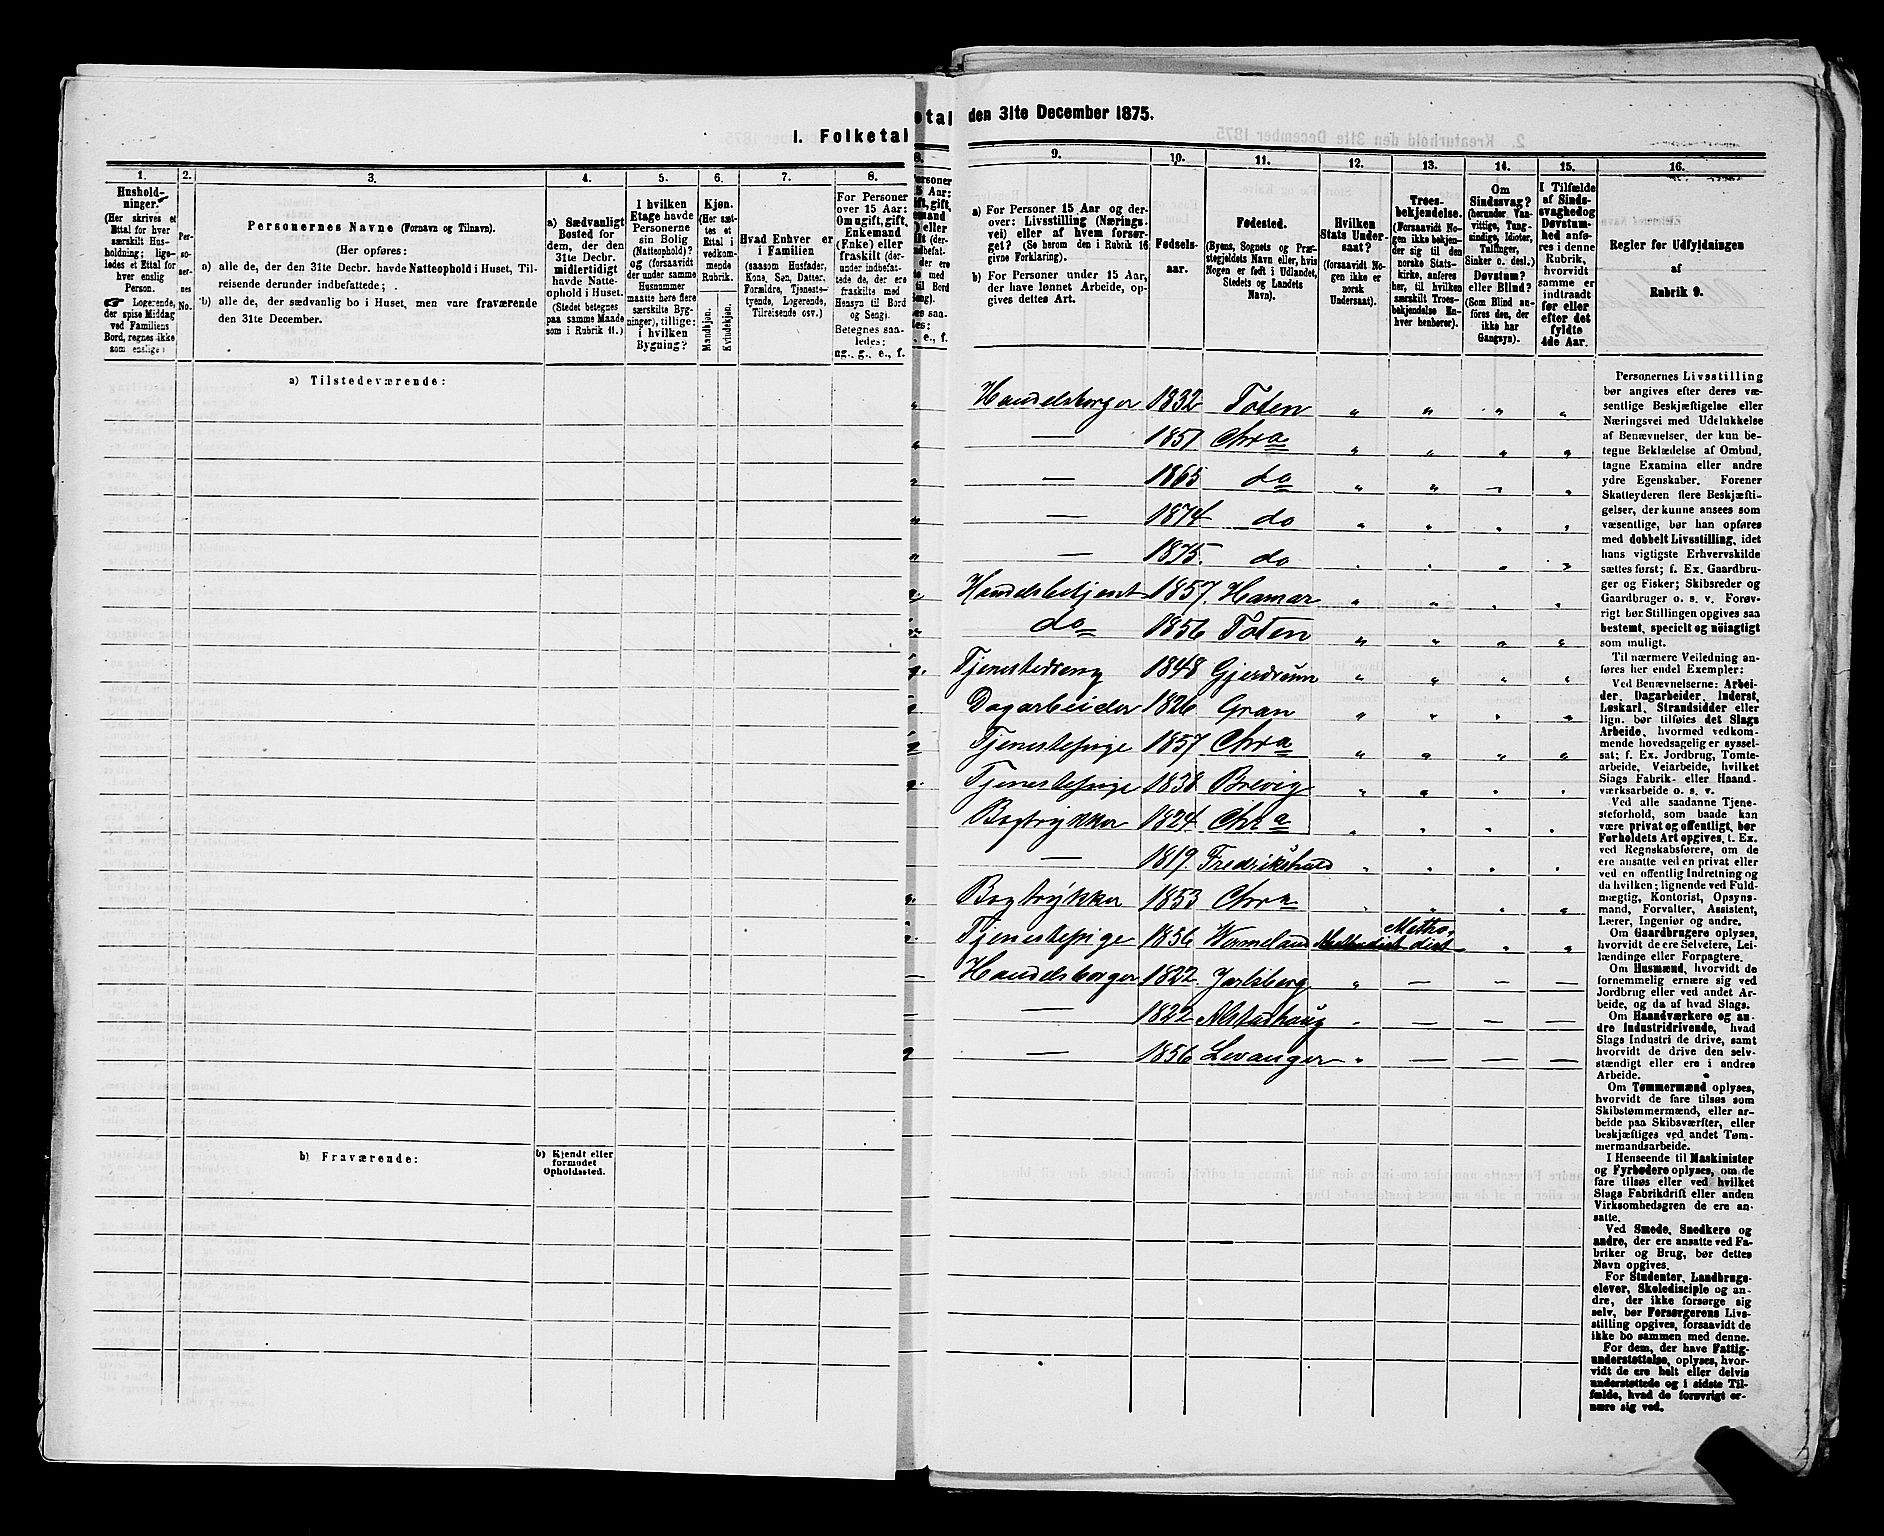 I. Folketal
etal
den 31te December 1875.
1.
2.
3.
4.
5.
6.
7.
8.
8.
9.
10.
11.
12.
13.
14.
15.
16.
Hushold-
ninger.
(Her skrives et
Ettal for hver
særskilt Hus-
holdning; lige-
ledes et Ettal for
hver enslig
Person.
☞ Logerende,
der spise Middag
ved Familiens
Bord, regnes ikke
som enslige.)
Per-
so-
ner-
nes
No.
Personernes Navne (Fornavn og Tilnavn).
(Her opføres:
a) alle de, der den 31te Decbr. havde Natteophold i Huset, Til-
reisende derunder indbefattede;
b) alle de, der sædvanlig bo i Huset, men vare fraværende
den 31te December.
a) Sædvanligt
Bosted for
dem, der den
31te Decbr.
midlertidigt
havde Natte-
ophold i Huset.
(Stedet betegnes
paa samme Maade
som i Rubrik 11.)
I hvilken
Etage havde
Personerne
sin Bolig
(Natteophold)?
og (forsaavidt
der under samme
Husnummer
maatte høre flere
særskilte Byg-
ninger), tillige:
i hvilken
Bygning?
Kjøn.
(Her sæt-
tes et
Ettal i
vedkom-
mende
Rubrik.
Mandkjøn.
Kvindekjøn.
Hvad Enhver er
i Familien
(saasom Husfader,
Kone, Søn, Datter,
Forældre, Tjeneste-
tyende, Logerende,
Tilreisende osv.)
For Personer
over 15 Aar:
Om ugift, gift,
Enkemand
(Enke) eller
fraskilt (der-
under indbefat-
tede de, der ere
fraskilte med
Hensyn til Bord
og Seng).
Betegnes saa-
ledes:
ug., g., e., f.
a) For Personer 15 Aar og der-
over: Livsstilling (Nærings-
vei) eller af hvem forsør-
get? (Se herom den i Rubrik 16
givne Forklaring).
b) For Personer under 15 Aar,
der have lønnet Arbeide, op-
gives dettes Art.
Fødsels-
aar.
Fødested.
(Byens, Sognets og Præ-
stegjeldets Navn eller, hvis
Nogen er født i Udlandet,
Stedets og Landets
Navn).
Hvilken
Stats Under-
saat?
(forsaavidt No-
gen ikke er
norsk
Undersaat).
Troes-
bekjendelse.
(Forsaavidt No-
gen ikke bekjen-
der sig til den
norske Stats-
kirke, anføres
her, til hvilken
særskilt Troes-
bekjendelse En-
hver henhører).
Om
Sindssvag?
(herunder Van-
vittige, Tung-
sindige, Idioter,
Tullinger,
Sinker o. desl.)
Døvstum?
eller Blind?
(Som Blind an-
føres den, der
ikke har
Gangsyn).
I Tilfælde
af Sinds-
svaghed og
Døvstum-
hed anfø-
res i denne
Rubrik,
hvorvidt
samme er
indtraadt
før eller
efter det
fyldte
4de Aar.
Regler for Udfyldningen
af
Rubrik 9.
a) Tilstedeværende:
Handelsborger 1832 Toten
— 1851 Chra
— 1865 do
— 1874 do
— 1875. do
Handelsbetjent 1857. Hamar
do 1856 Toten
Tjenestedreng 1848 Gjerdrum
Dagarbeider 1826 Gran
Tjenestepige 1857 Chra
Tjenestepige 1838 Brevig
Bogtrykker 1824 Chra
— 1819. Fredrikshald
Bogtrykker 1853 Chra
Tjenestepige 1856 Wermeland Methodist
Handelsborger 1822 Jarlsberg
— 1822 Alstahaug
— 1856 Levanger
b) Fraværende:
b) Kjendt eller
formodet
Opholdssted.
Personernes Livsstilling
bør angives efter deres væ-
sentlige Beskjæftigelse eller
Næringsvei med Udelukkelse
af Benævnelser, der kun be-
tegne Beklædelse af Ombud,
tagne Examina eller andre
ydre Egenskaber. Forener
Skatteyderen flere Beskjæfti-
gelser, der kunne ansees som
væsentlige, bør han opføres
med dobbelt Livsstilling, idet
hans vigtigste Erhvervskilde
sættes først; f. Ex. Gaardbru-
ger og Fisker; Skibsreder og
Gaardbruger o. s. v. Forøv-
rigt bør Stillingen opgives saa
bestemt, specielt og nöiagtigt
som muligt.
Til nærmere Veiledning an-
føres her endel Exempler:
Ved Benævnelserne: Arbei-
der, Dagarbeider, Inderst,
Løskarl, Strandsidder eller
lign. bør tilføies det Slags
Arbeide, hvormed vedkom-
mende hovedsagelig er syssel-
sat; f. Ex. Jordbrug, Tomte-
arbeide, Veiarbeide, hvilket
Slags Fabrik- eller Haand-
værksarbeide o. s. v.
Ved alle saadanne Tjene-
steforhold, som baade kan
være privat og offentligt, bør
Forholdets Art opgives, t. Ex.
ved Regnskabsførere, om de
ere ansatte ved en privat eller
ved en offentlig Indretning og
da hvilken; lignende ved Fuld-
mægtig, Kontorist, Opsyns-
mand, Forvalter, Assistent,
Lærer, Ingeniør og andre.
Om Gaardbrugere oplyses,
hvorvidt de ere Selveiere, Lei-
lændinge eller Forpagtere.
Om Husmænd, hvorvidt de
fornemmelig ernære sig ved
Jordbrug eller ved andet Ar-
beide, og da af hvad Slags.
Om Haandværkere og an-
dre Industridrivende, hvad
Slags Industri de drive, samt
hvorvidt de drive den selv-
stændigt eller ere i andres
Arbeide.
Om Tømmermænd oplyses,
hvorvidt de fare tilsøs som
Skibstømmermænd, eller ar-
beide paa Skibsværfter, eller
beskjæftiges ved andet Tøm-
mermandsarbeide.
I Henseende til Maskinister
og Fyrbødere oplyses, om de
fare tilsøs eller ved hvilket
Slags Fabrikdrift eller anden
Virksomhedsgren de ere an-
satte.
Ved Smede, Snedkere og
andre, der ere ansatte ved Fa-
briker og Brug, bør dettes
Navn opgives.
For Studenter, Landbrugs-
elever, Skoledisciple og an-
dre, der ikke forsørge sig
selv, bør Forsørgerens Livs-
stilling opgives, forsaavidt de
ikke bo sammen med denne.
For dem, der have Fattig-
understøttelse, oplyses, hvor-
vidt de ere helt eller delvis
understøttede og i sidste Til-
fælde, hvad de forøvrigt er-
nære sig ved.